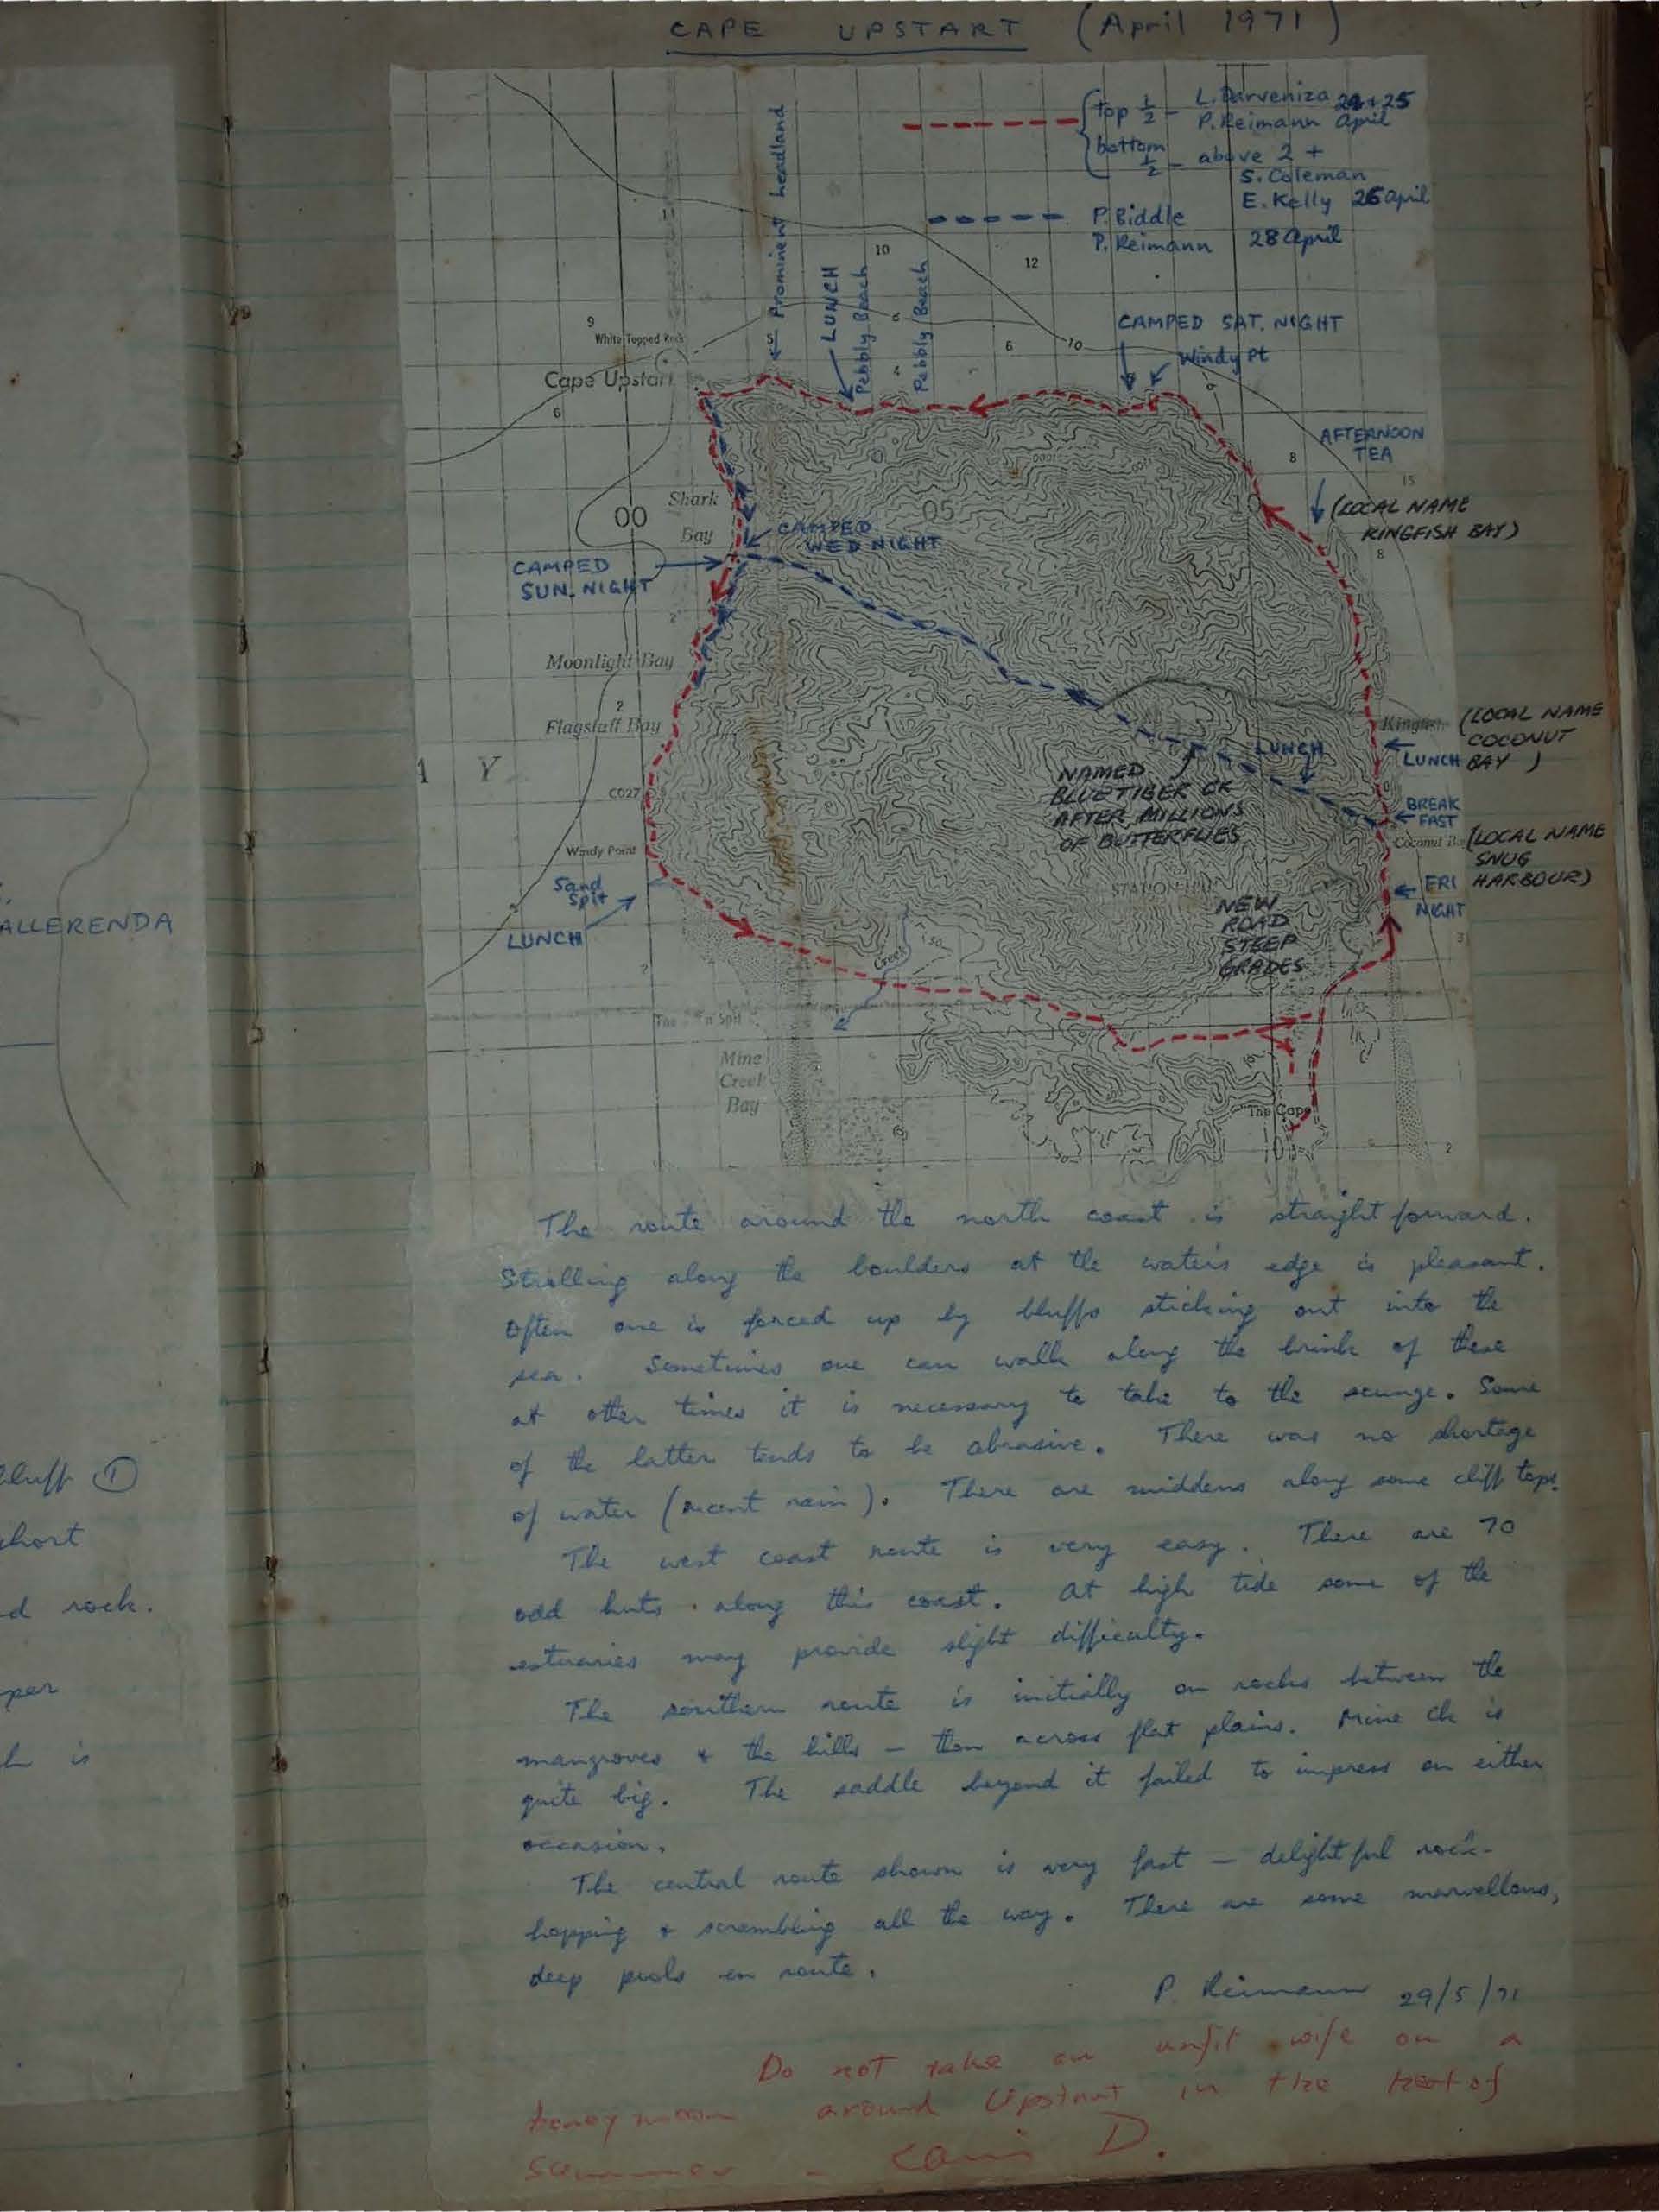 CAPE UPSTART (April 1971)
top 1/2 - L. Darveniza 24+25
P. Reimann April
bottom 1/2 - above 2 +
S. Coleman
E. Kelly 26 April
P. Biddle
P. Reimann 28 April
Prominent headland
LUNCH
Pebbly Beach
Pebbly Beach
10
12
9
White Topped Rock
5
6
10
6
4
CAMPED SAT. NIGHT
Windy Pt
Cape Upstart
6
AFTERNOON
TEA
8
15
Shark
Bay
00
05
10
(LOCAL NAME
KINGFISH BAY)
8
CAMPED
WED NIGHT
CAMPED
SUN. NIGHT
2
Moonlight Bay
2
Flagstaff Bay
A Y
(LOCAL NAME
COCONUT
BAY)
LUNCH
LUNCH
NAMED
BLUE TIGER CK
AFTER MILLIONS
OF BUTTERFLIES
C027
BREAK
FAST
Coconut
(LOCAL NAME
SNUG
HARBOUR)
Windy Point
Sand
Spit
LUNCH
STATION HILL
NEW
ROAD
STEEP
GRADES
FRI
NIGHT
3
Creek
Spit
Mine
Creek
Bay
The Cape
2
ALLERENDA
bluff ①
short
d rock.
per
h is
The route around the north coast is straight forward.
Strolling along the boulders at the waters edge is pleasant.
Often one is forced up by bluffs sticking out into the
sea. Sometimes one can walk along the brink of these
at other times it is necessary to take to the scunge. Some
of the latter tends to be abrasive. There was no shortage
of water (recent rain). There are middens along some cliff tops.
The west coast route is very easy. There are 70
odd huts along this coast. At high tide some of the
estuaries may provide slight difficulty.
The southern route is initially on rocks between the
mangroves & the hills - then across flat plains. Mine Ck is
quite big. The saddle beyond it failed to impress on either
occasion.
The central route shown is very fast - delightful rock-
hopping & scrambling all the way. There are some marvellous,
deep pools en route.
P. Reimann 29/5/71
Do not take an unfit wife on a
honeymoon around Upstart in the heat of
summer - D.